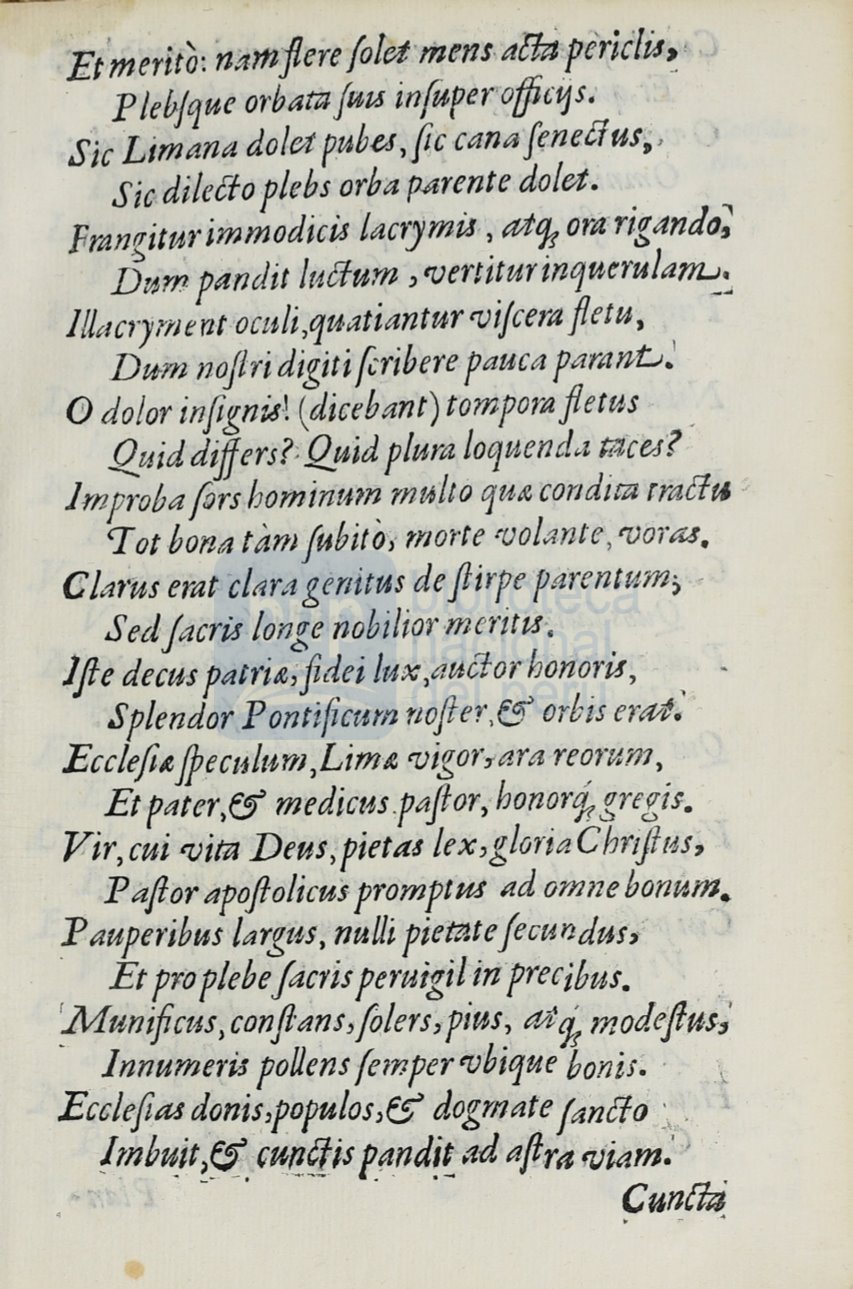 Et meritò: nam flere ſolet mens acta periclis,
Plebſque orbata ſuis inſuper officijs.
Sic Limana dolet pubes, ſic cana ſenectus,
Sic dilecto plebs orba parente dolet.
Frangitur immodicis lacrymis, atq; ora rigando,
Dum pandit luctum, vertitur inquerulam.
Illacryment oculi, quatiantur viſcera fletu,
Dum noſtri digiti ſcribere pauca parant.
O dolor inſignis! (dicebant) tompora fletus
Quid differs? Quid plura loquenda taces?
Improba ſors hominum multo quæ condita tractu
Tot bona tàm ſubitò, morte volante, voras.
Clarus erat clara genitus de ſtirpe parentum;
Sed ſacris longe nobilior meritis.
Iſte decus patriæ, fidei lux, auctor honoris,
Splendor Pontificum noſter, & orbis erat.
Eccleſiæ ſpeculum, Limæ vigor, ara reorum,
Et pater, & medicus paſtor, honorq́; gregis.
Vir, cui vita Deus, pietas lex, gloria Chriſtus,
Paſtor apoſtolicus promptus ad omne bonum.
Pauperibus largus, nulli pietate ſecundus,
Et pro plebe ſacris peruigil in precibus.
Munificus, conſtans, ſolers, pius, atq́; modeſtus,
Innumeris pollens ſemper vbique bonis.
Eccleſias donis, populos, & dogmate ſancto
Imbuit, & cunctis pandit ad aſtra viam.
Cuncta